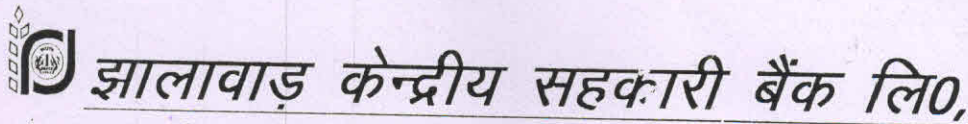 झालावाड़ केन्द्रीय सहकारी बैंक लि0,